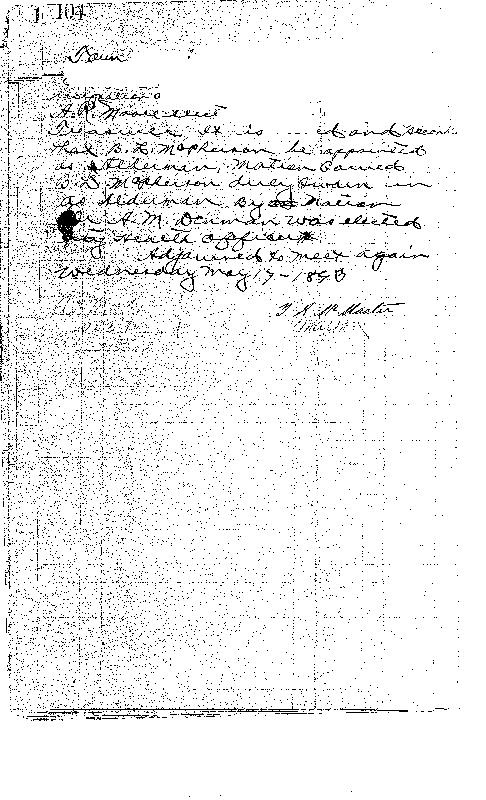 104
Town
A. P. Moore elect
Treasurer, It is ed and second
that B. L. McPherson be appointed
as Alderman, Motion Carried
B. L. McPherson duly sworn in
as Alderman By Motion
Dr. A. M. Denman was elected
City Health officer
Adjourned to meet again
Wednesday May 17 - 1893
T. H. McMaster